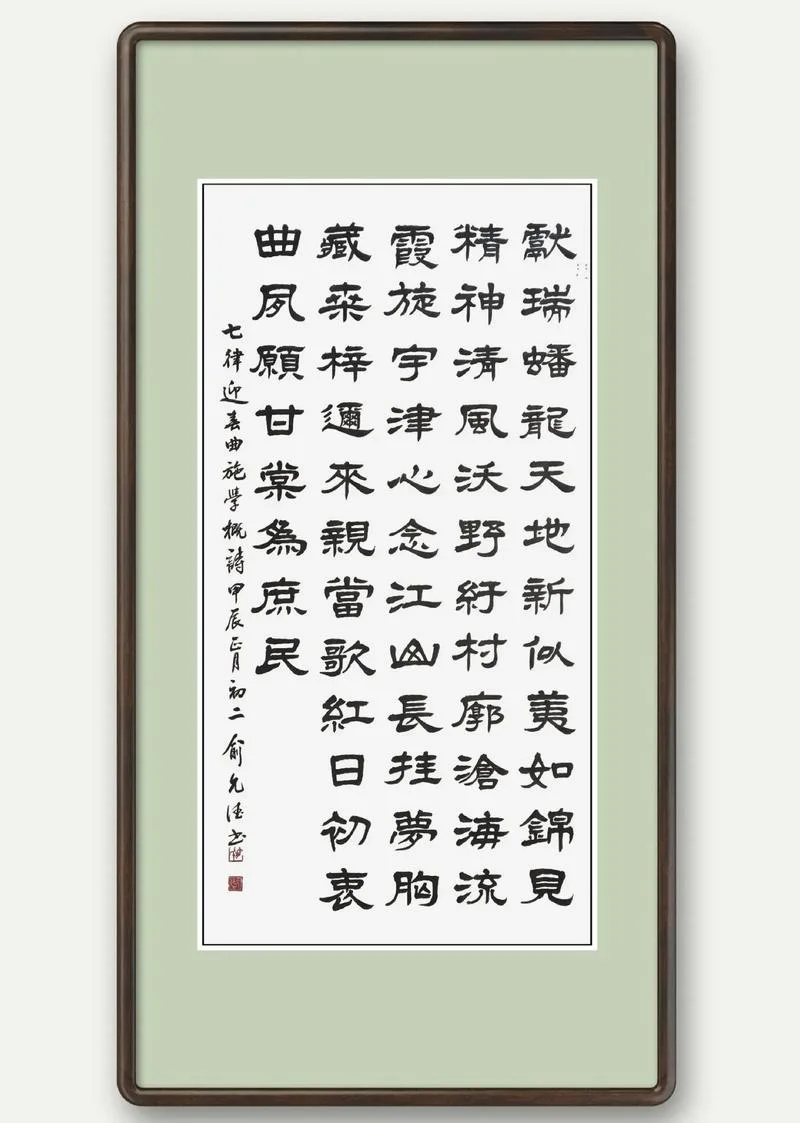 獻瑞蟠龍天地新似荑如錦見
精神清風沃野紆村廓滄海流
霞旋宇津心念江山長挂夢胸
藏桑梓邇來親當歌紅日初衷
曲夙願甘棠為庶民
七律迎春曲施學概詩甲辰正月初二俞允書